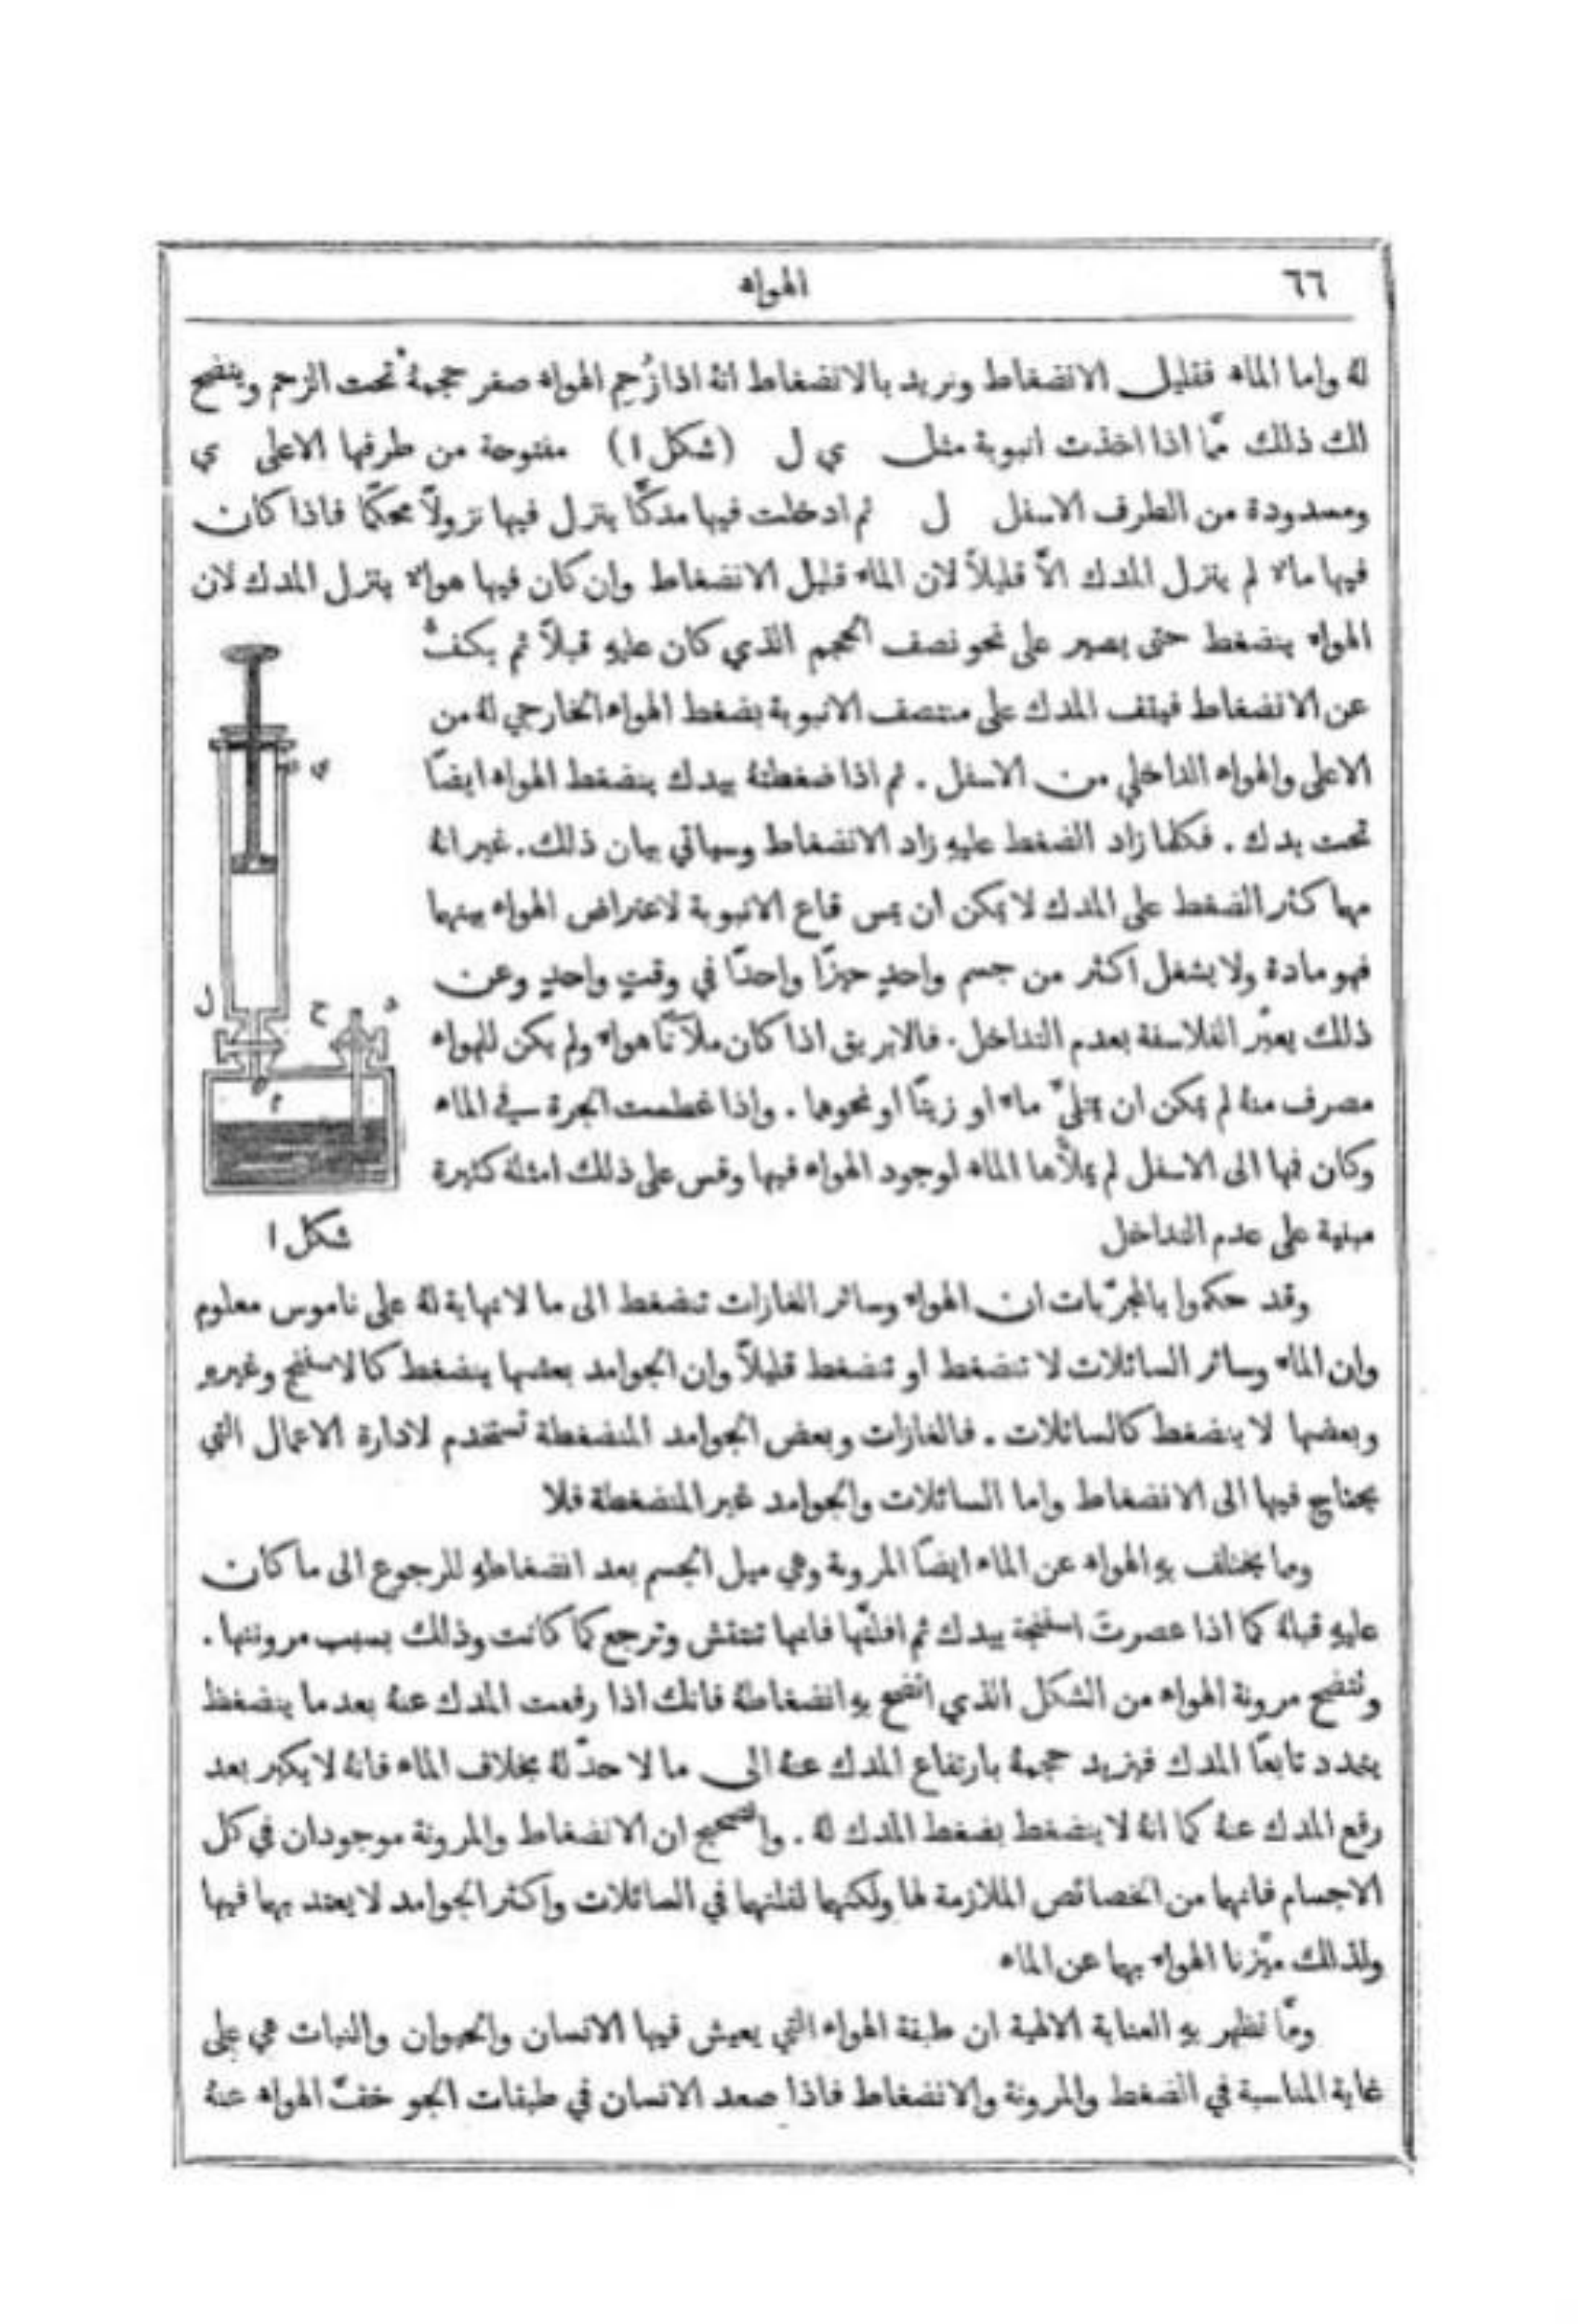 ٦٦
الهواء
لهُ واما الماء فقليل الانضغاط ونريد بالانضغاط انهُ اذا زُحِم الهواء صغر حجمهُ تحت الزحم ويتضح
لك ذلك ممّا اذا اخذت انبوبة مثل ي ل (شكل ١) مفتوحة من طرفها الاعلى ي
ومسدودة من الطرف الاسفل ل ثم ادخلت فيها مدكًّا ينزل فيها نزولًا محكمًا فاذا كان
فيها ماء لم ينزل المدك الَّا قليلًا لان الماء قليل الانضغاط وان كان فيها هواء ينزل المدك لان
الهواء ينضغط حتى يصير على نحو نصف الحجم الذي كان عليهِ قبلًا ثم يكفُّ
عن الانضغاط فيقف المدك على منتصف الانبوبة بضغط الهواء الخارجي لهُ من
الاعلى والهواء الداخلي من الاسفل . ثم اذا ضغطتهُ بيدك ينضغط الهواء ايضًا
تحت يدك . فكلما زاد الضغط عليهِ زاد الانضغاط وسياتي بيان ذلك . غير انهُ
مهما كثر الضغط على المدك لا يمكن ان يمس قاع الانبوبة لاعتراض الهواء بينهما
فهو مادة ولا يشغل اكثر من جسم واحدٍ حيزًا واحدًا في وقتٍ واحدٍ وعن
ذلك يعبّر الفلاسفة بعدم التداخل . فالابريق اذا كان ملآنًا هواء ولم يكن للهواء
مصرف منهُ لم يمكن ان يمتلئ ماء او زيتًا او نحوهما . واذا غطست الجرة في الماء
وكان فمها الى الاسفل لم يملأها الماء لوجود الهواء فيها وقس على ذلك امثلة كثيرة
مبنية على عدم التداخل
ي
ل
ح
م
شكل ١
وقد حكموا بالمجرّبات ان الهواء وسائر الغازات تنضغط الى ما لا نهاية لهُ على ناموس معلوم
وان الماء وسائر السائلات لا تنضغط او تنضغط قليلًا وان الجوامد بعضها ينضغط كالاسفنج وغيرهِ
وبعضها لا ينضغط كالسائلات . فالغازات وبعض الجوامد المنضغطة تُستخدم لادارة الاعمال التي
يحتاج فيها الى الانضغاط واما السائلات والجوامد غير المنضغطة فلا
وما يختلف بهِ الهواء عن الماء ايضًا المرونة وهي ميل الجسم بعد انضغاطهِ للرجوع الى ما كان
عليهِ قبلهُ كما اذا عصرتَ اسفنجة بيدك ثم افلتّها فانها تنتفش وترجع كما كانت وذلك بسبب مرونتها .
وتتضح مرونة الهواء من الشكل الذي اتضح بهِ انضغاطهُ فانك اذا رفعت المدك عنهُ بعد ما ينضغط
يتمدد تابعًا المدك فيزيد حجمهُ بارتفاع المدك عنهُ الى ما لا حدّ لهُ بخلاف الماء فانهُ لا يكبر بعد
رفع المدك عنهُ كما انهُ لا ينضغط بضغط المدك لهُ . والصحيح ان الانضغاط والمرونة موجودان في كل
الاجسام فانهما من الخصائص الملازمة لها ولكنهما لقلتهما في السائلات واكثر الجوامد لا يعتد بهما فيها
ولذلك ميّزنا الهواء بهما عن الماء
وممّا تظهر بهِ العناية الالهية ان طبقة الهواء التي يعيش فيها الانسان والحيوان والنبات هي على
غاية المناسبة في الضغط والمرونة والانضغاط فاذا صعد الانسان في طبقات الجو خفّ الهواء عنهُ